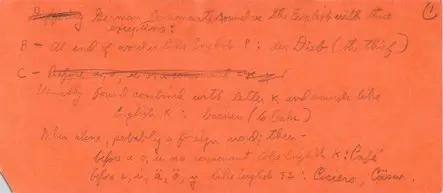 German Consonants sound as the English with these
exceptions:
B - At end of word is like English P: der Dieb (the thief)
C - Before a, o, u no consonant = K
Usually found combined with letter K and sounds like
English K: backen (to bake)
When alone, probably a foreign word; then -
before a o, u no consonant like English K: Café
before e, i, ä, ö, y like English TS: Cicero, Cäsar.
C